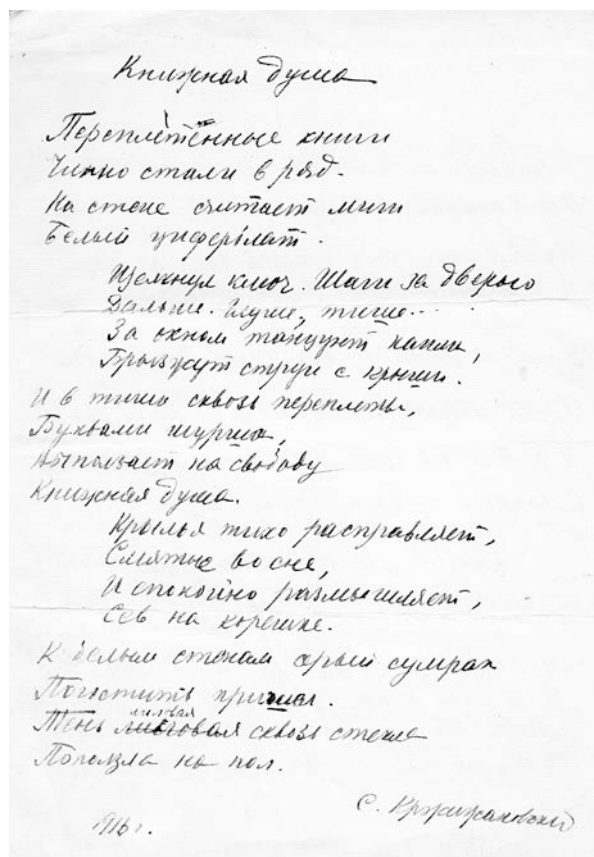 Книжная душа
Переплётенные книги
Чинно стали в ряд.
На стене считает миги
Белый циферблат.
Щелкнул ключ. Шаги за дверью
Дальше. Глуше, тише...
За окном танцуют капли,
Брызжут струи с крыши.
И в тиши сквозь переплеты,
Буквами шурша,
Выползает на свободу
Книжная душа.
Крылья тихо расправляет,
Смятые во сне,
И спокойно размышляет,
Сев на корешке.
К белым стенам серый сумрак
Погостить пришел.
Тень лиловая сквозь стекла
Поползла на пол.
С. Кржижановский
1913 г.